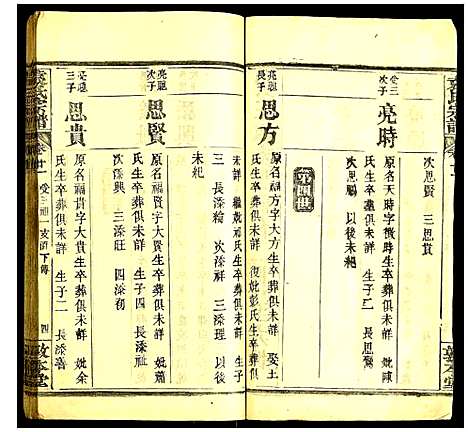 次思賢 三思貴
受三
次子
亮時
原名天時字微時生卒葬俱未詳 妣陳
氏生卒葬俱未詳 生子三 長思
次思 以後未紀
第四世
亮
長子
思方
原名福方字大方生卒葬俱未詳 娶
氏生卒葬俱未詳 復妣彭氏生卒葬俱
未詳 繼妣 氏生卒葬俱未詳 生子
三 長添綸 次添祥 三添理 以後
未紀
亮
次子
思賢
原名福賢字大賢生卒葬俱未詳 妣蕭
氏生卒葬俱未詳 生子四 長添祉
次添興 三添旺 四添
亮
三子
思貴
原名福貴字大貴生卒葬俱未詳 妣余
氏生卒葬俱未詳 生子二 長添壽
氏宗譜
卷十一
受三 一支 下傳
四
敦本堂